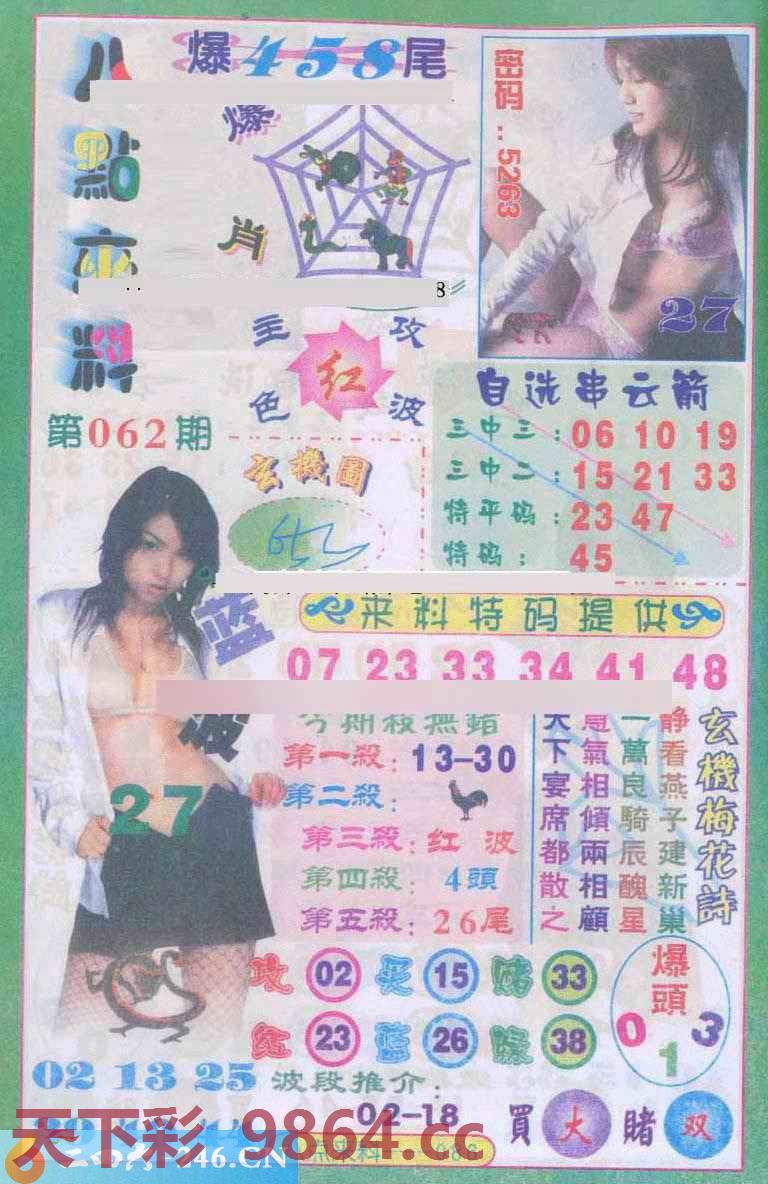 八點來料
爆458尾
爆肖
密码..5263
27
8
主攻
红
色波
第062期
玄機圖
自选串云箭
三中三：06 10 19
三中二：15 21 33
特平码：23 47
特码：45
来料特码提供
07 23 33 34 41 48
蓝波
27
今期殺無錯
第一殺：13-30
第二殺：
第三殺：红波
第四殺：4頭
第五殺：26尾
玄機梅花詩
静看燕子建新巢
一萬良騎辰醜星
意氣相傾兩相顧
天下宴席都散之
攻 02 买 15 赌 33
红 23 藍 26 綠 38
爆頭
0 1 3
02 13 25
波段推介：
02-18
買大赌双
天下彩-9864.cc
246.CN